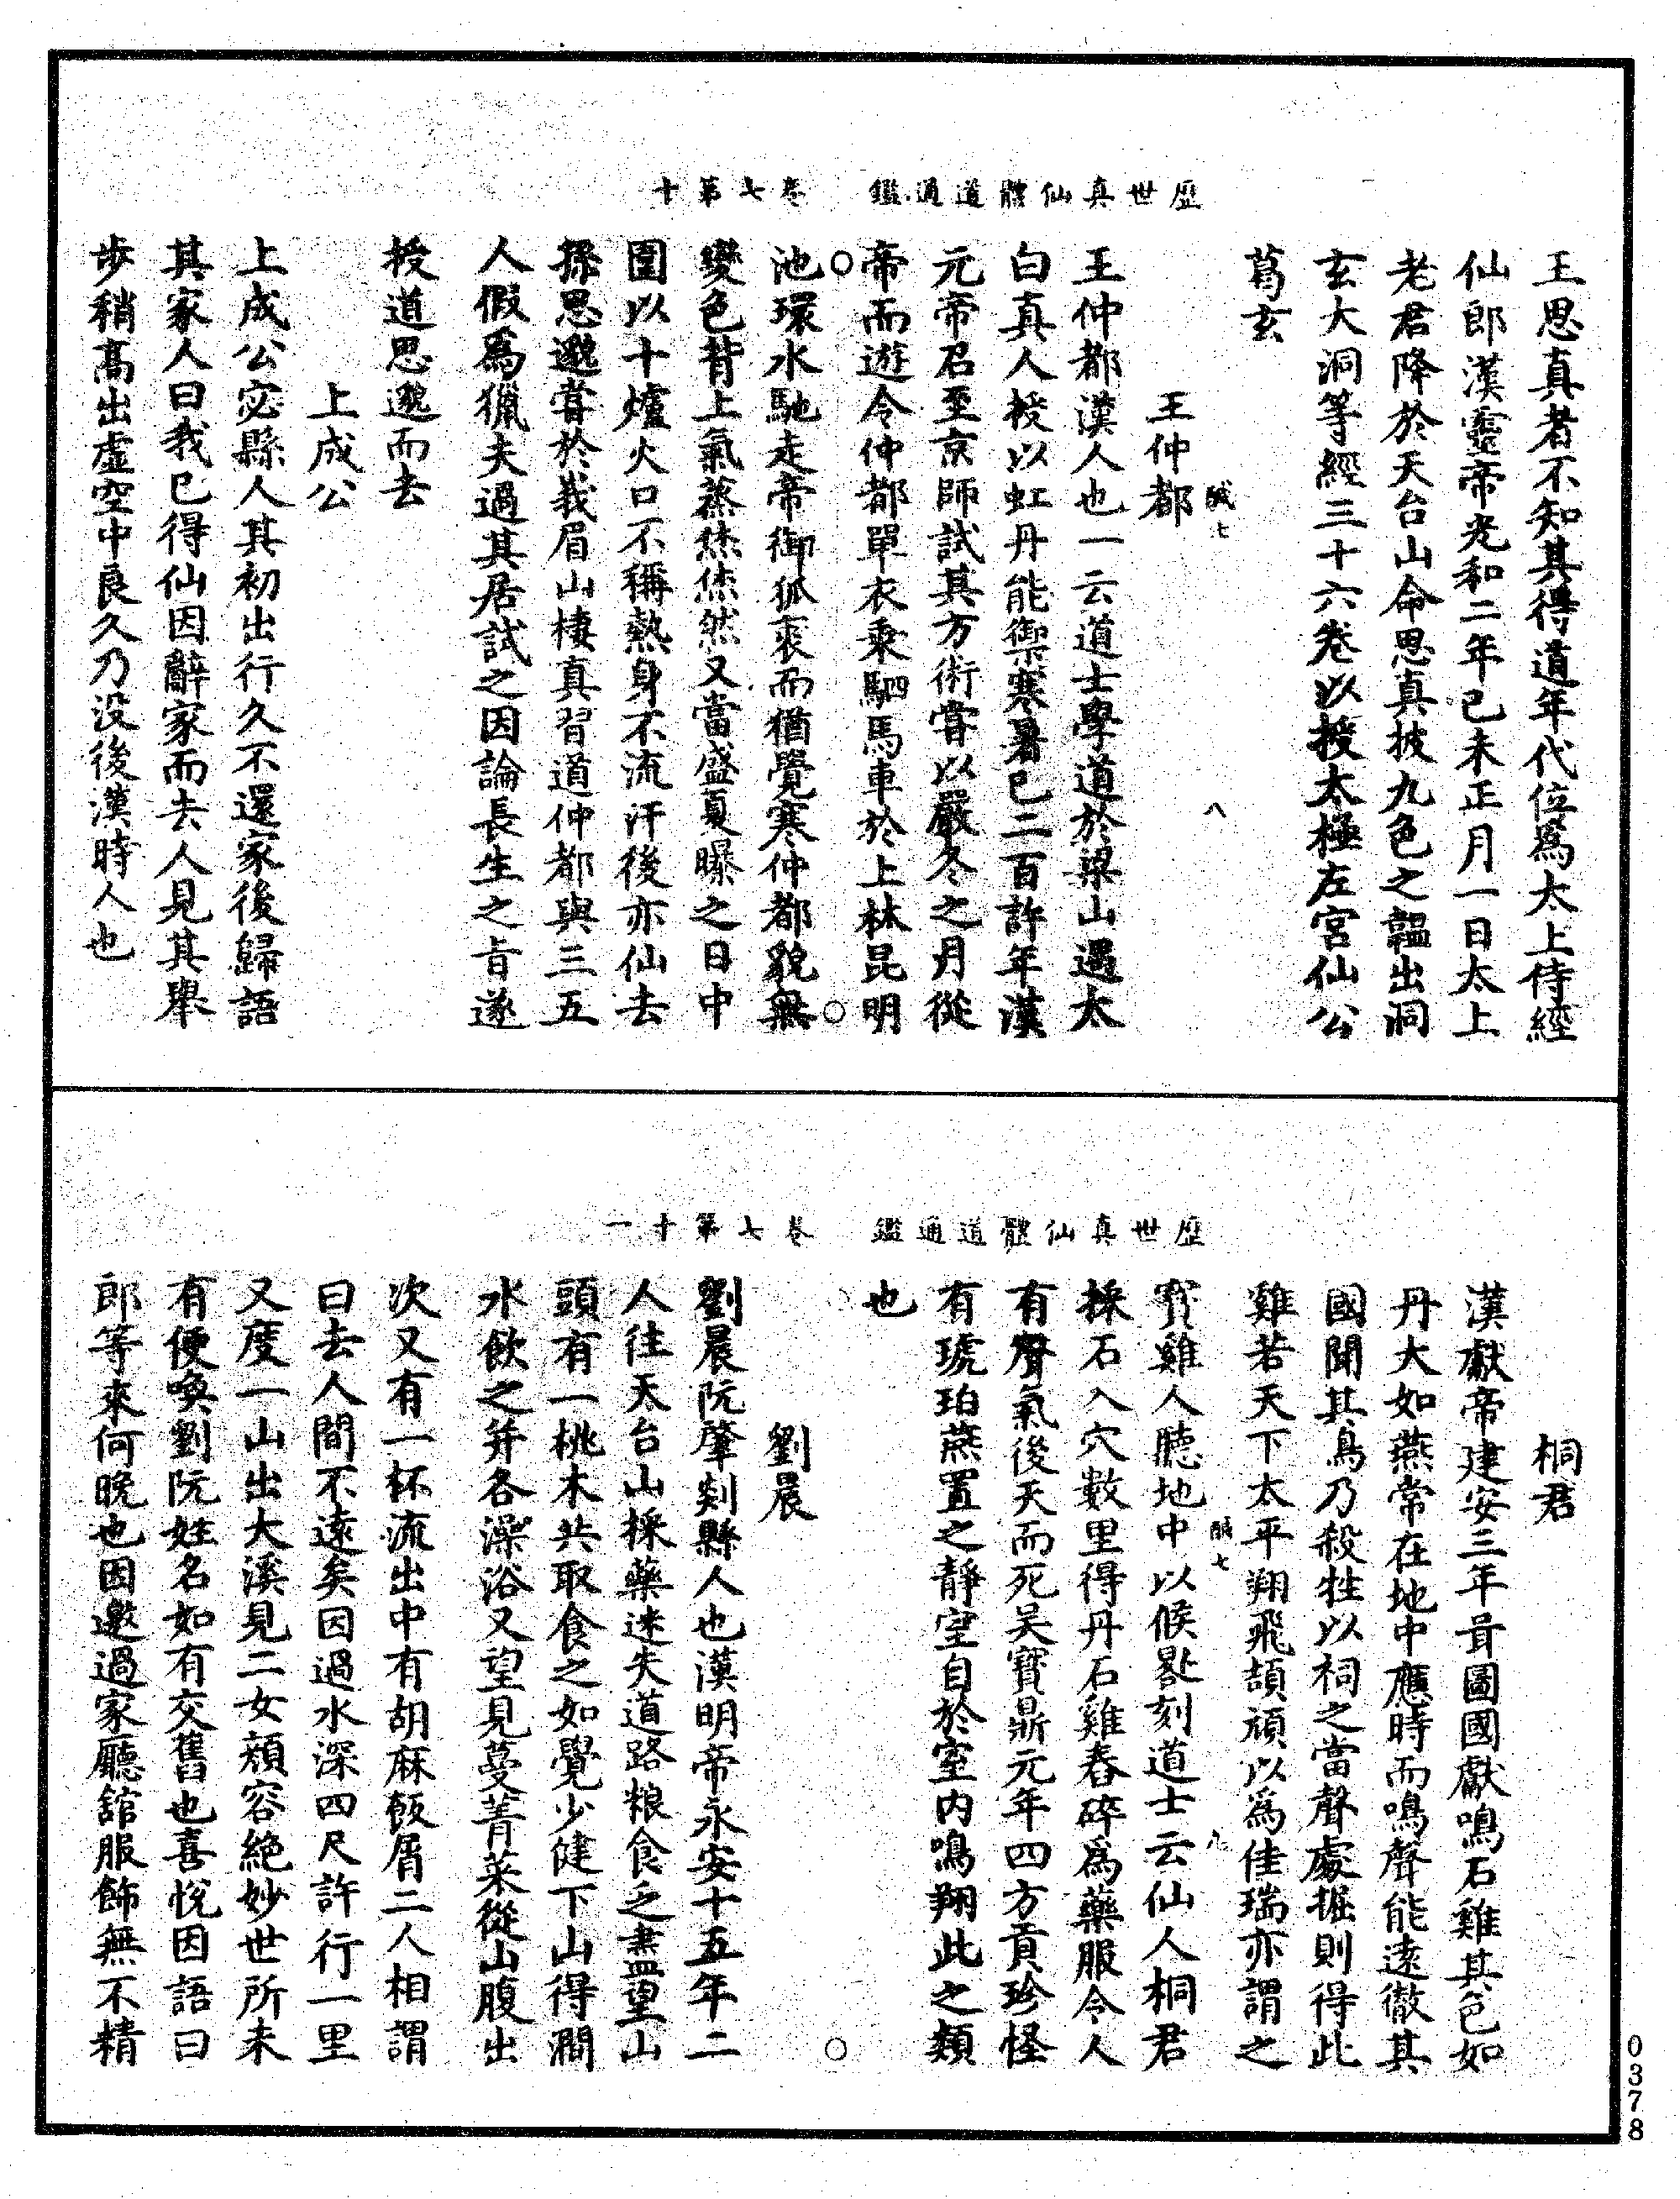 歷世真仙體道通鑑　卷七第十
王思真者不知其得道年代位爲太上侍經
仙郎漢靈帝光和二年己未正月一日太上
老君降於天台山命思真披九色之韞出洞
玄大洞等經三十六卷以授太極左宮仙公
葛玄
鹹七　八
王仲都
王仲都漢人也一云道士學道於梁山遇太
白真人授以虹丹能禦寒暑已二百許年漢
元帝召至京師試其方術嘗以嚴冬之月從
帝而遊令仲都單衣乘駟馬車於上林昆明
池環水馳走帝御狐裘而猶覺寒仲都貌無
變色背上氣蒸烋烋然又當盛夏曝之日中
圍以十爐火口不稱熱身不流汗後亦仙去
孫思邈嘗於峩眉山棲真習道仲都與三五
人假爲獵夫過其居試之因論長生之旨遂
授道思邈而去
上成公
上成公宓縣人其初出行久不還家後歸語
其家人曰我已得仙因辭家而去人見其舉
步稍高出虛空中良久乃没後漢時人也
歷世真仙體道通鑑　卷七第十一
桐君
漢獻帝建安三年胥圖國獻鳴石雞其色如
丹大如燕常在地中應時而鳴聲能遠徹其
國聞其鳥乃殺牲以祠之當聲處掘則得此
雞若天下太平翔飛頡頏以爲佳瑞亦謂之
鹹七　九
寶雞人聽地中以候晷刻道士云仙人桐君
採石入穴數里得丹石雞舂碎爲藥服令人
有聲氣後天而死吴寶鼎元年四方貢珍怪
有琥珀燕置之靜室自於室内鳴翔此之類
也
劉晨
劉晨阮肇剡縣人也漢明帝永安十五年二
人往天台山採藥迷失道路粮食乏盡望山
頭有一桃木共取食之如覺少健下山得澗
水飲之并各澡浴又望見蔓菁菜從山腹出
次又有一杯流出中有胡麻飯屑二人相謂
曰去人間不遠矣因過水深四尺許行一里
又度一山出大溪見二女顔容絶妙世所未
有便喚劉阮姓名如有交舊也喜悅因語曰
郎等來何晚也因邀過家廳舘服飾無不精
0378